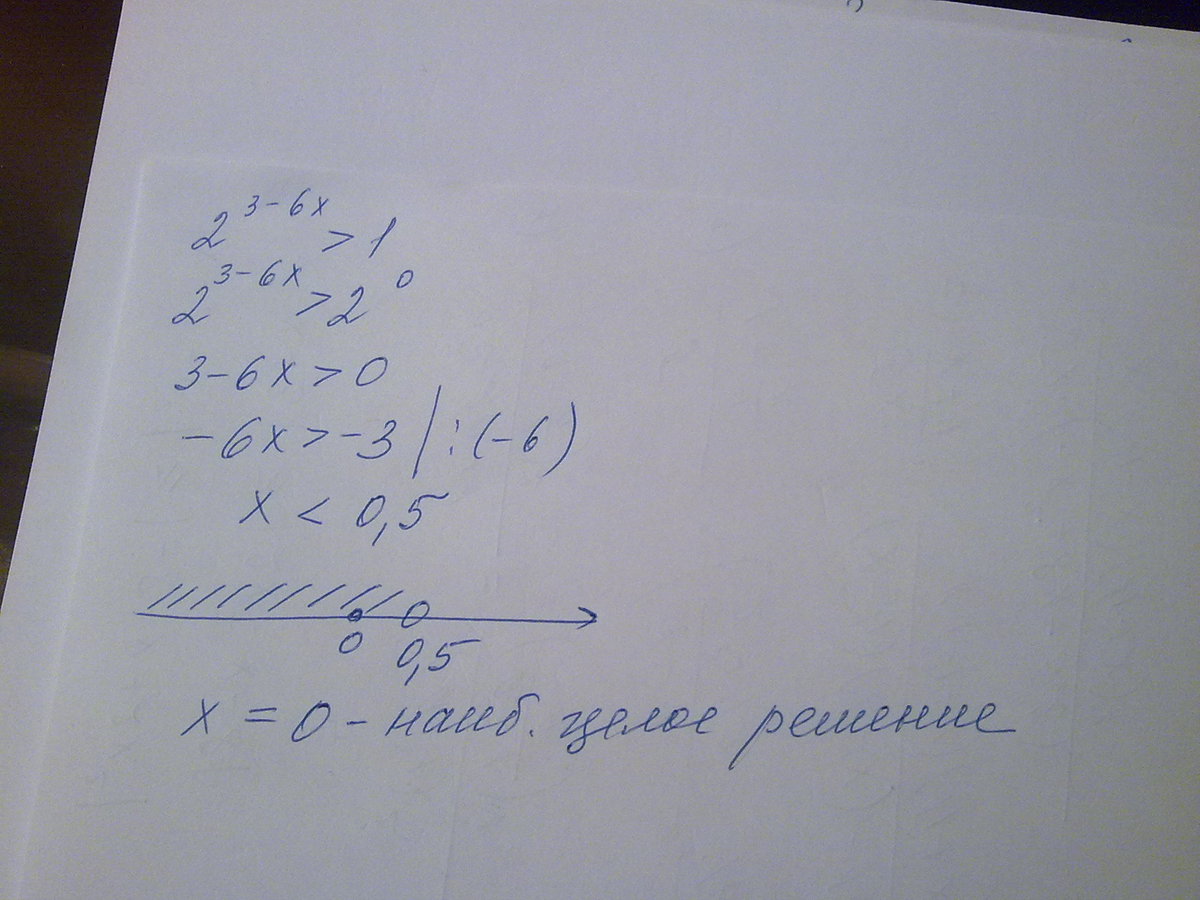 2^{3-6x} > 1
2^{3-6x} > 2^0
3-6x > 0
-6x > -3 | : (-6)
x < 0,5
0 0,5
x = 0 - наиб. целое решение